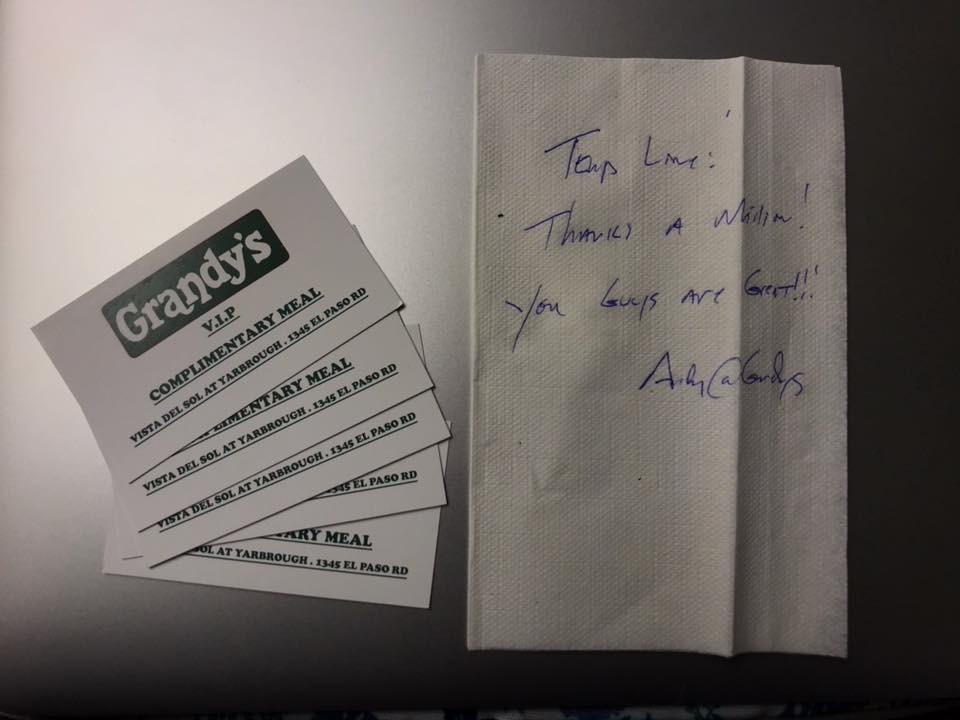 Grandy's
V.I.P
COMPLIMENTARY MEAL
VISTA DEL SOL AT YARBROUGH . 1345 EL PASO RD
LIMENTARY MEAL
VISTA DEL SOL AT YARBROUGH . 1345 EL PASO RD
VISTA DEL SOL AT YARBROUGH . 1345 EL PASO RD
1345 EL PASO RD
ARY MEAL
SOL AT YARBROUGH . 1345 EL PASO RD
Line:
Thanks A Million!
You Guys Are Great!!!
Andy @ Grandys